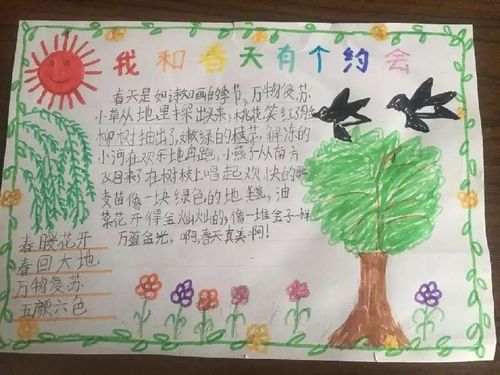 我和春天有个约会
春天是如诗如画的季节,万物复苏.
小草从地里探出头来,桃花笑红了脸
柳树抽出了嫩绿的枝芽.解冻的
小河在欢乐地奔跑,小燕子从南方
飞回来了在树枝上唱起欢快的歌
麦苗像一块绿色的地毯,油
菜花开得金灿灿的,像一堆金子一样
万道金光。啊,春天真美啊!
春暖花开
春回大地
万物复苏
五颜六色